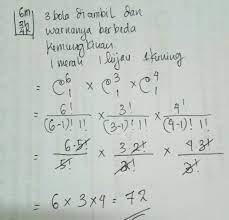 6m
3h
4k
3 bola diambil dan
warnanya berbeda
kemungkinan
1 merah 1 hijau 1 kuning
= C 6 1 × C 3 1 × C 4 1
= 6! / (6-1)! 1! × 3! / (3-1)! 1! × 4! / (4-1)! 1!
= 6·5! / 5! × 3·2! / 2! × 4 3! / 3!
= 6 × 3 × 4 = 72